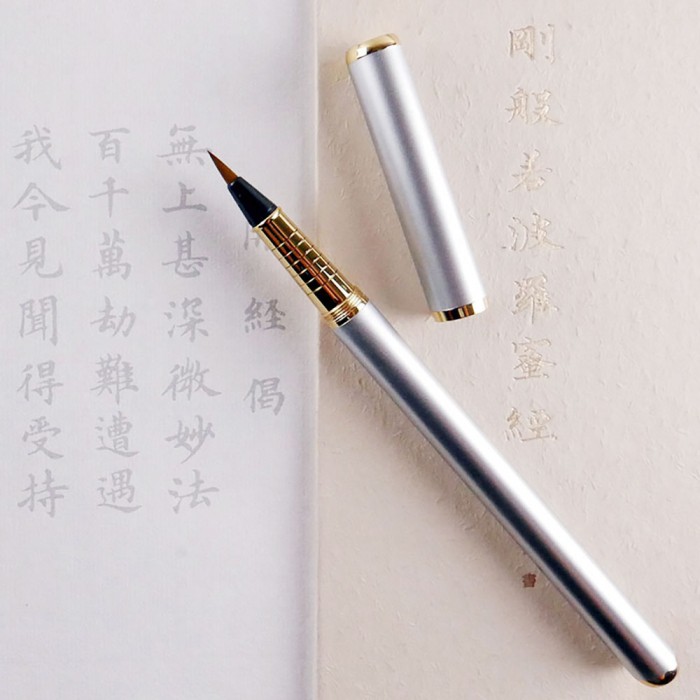 剛般若波羅蜜經
開経偈
無上甚深微妙法
百千萬劫難遭遇
我今見聞得受持